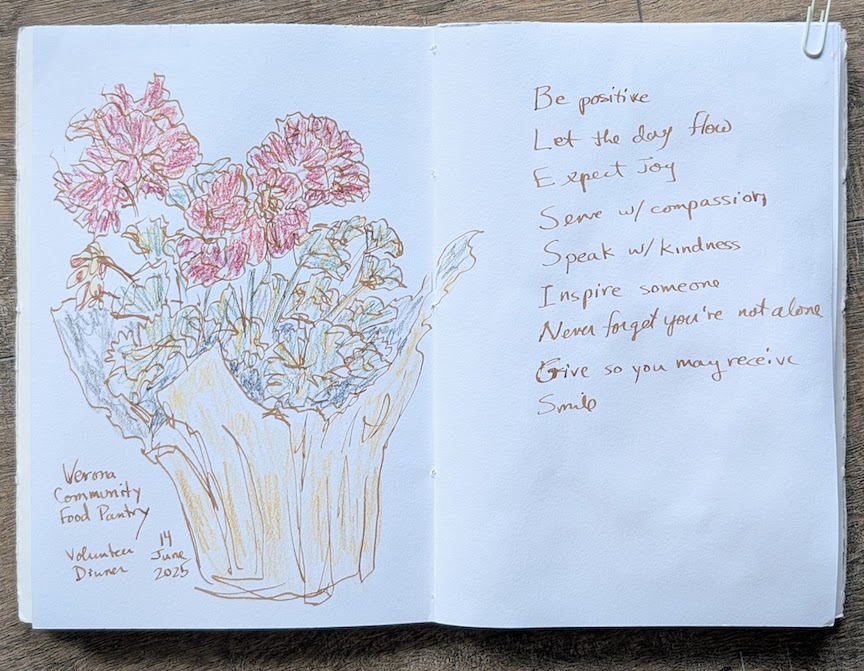 Verona
Community
Food Pantry
Volunteer
Dinner
14
June
2025
Be positive
Let the day flow
Expect Joy
Serve w/ compassion
Speak w/ kindness
Inspire someone
Never forget you're not alone
Give so you may receive
Smile